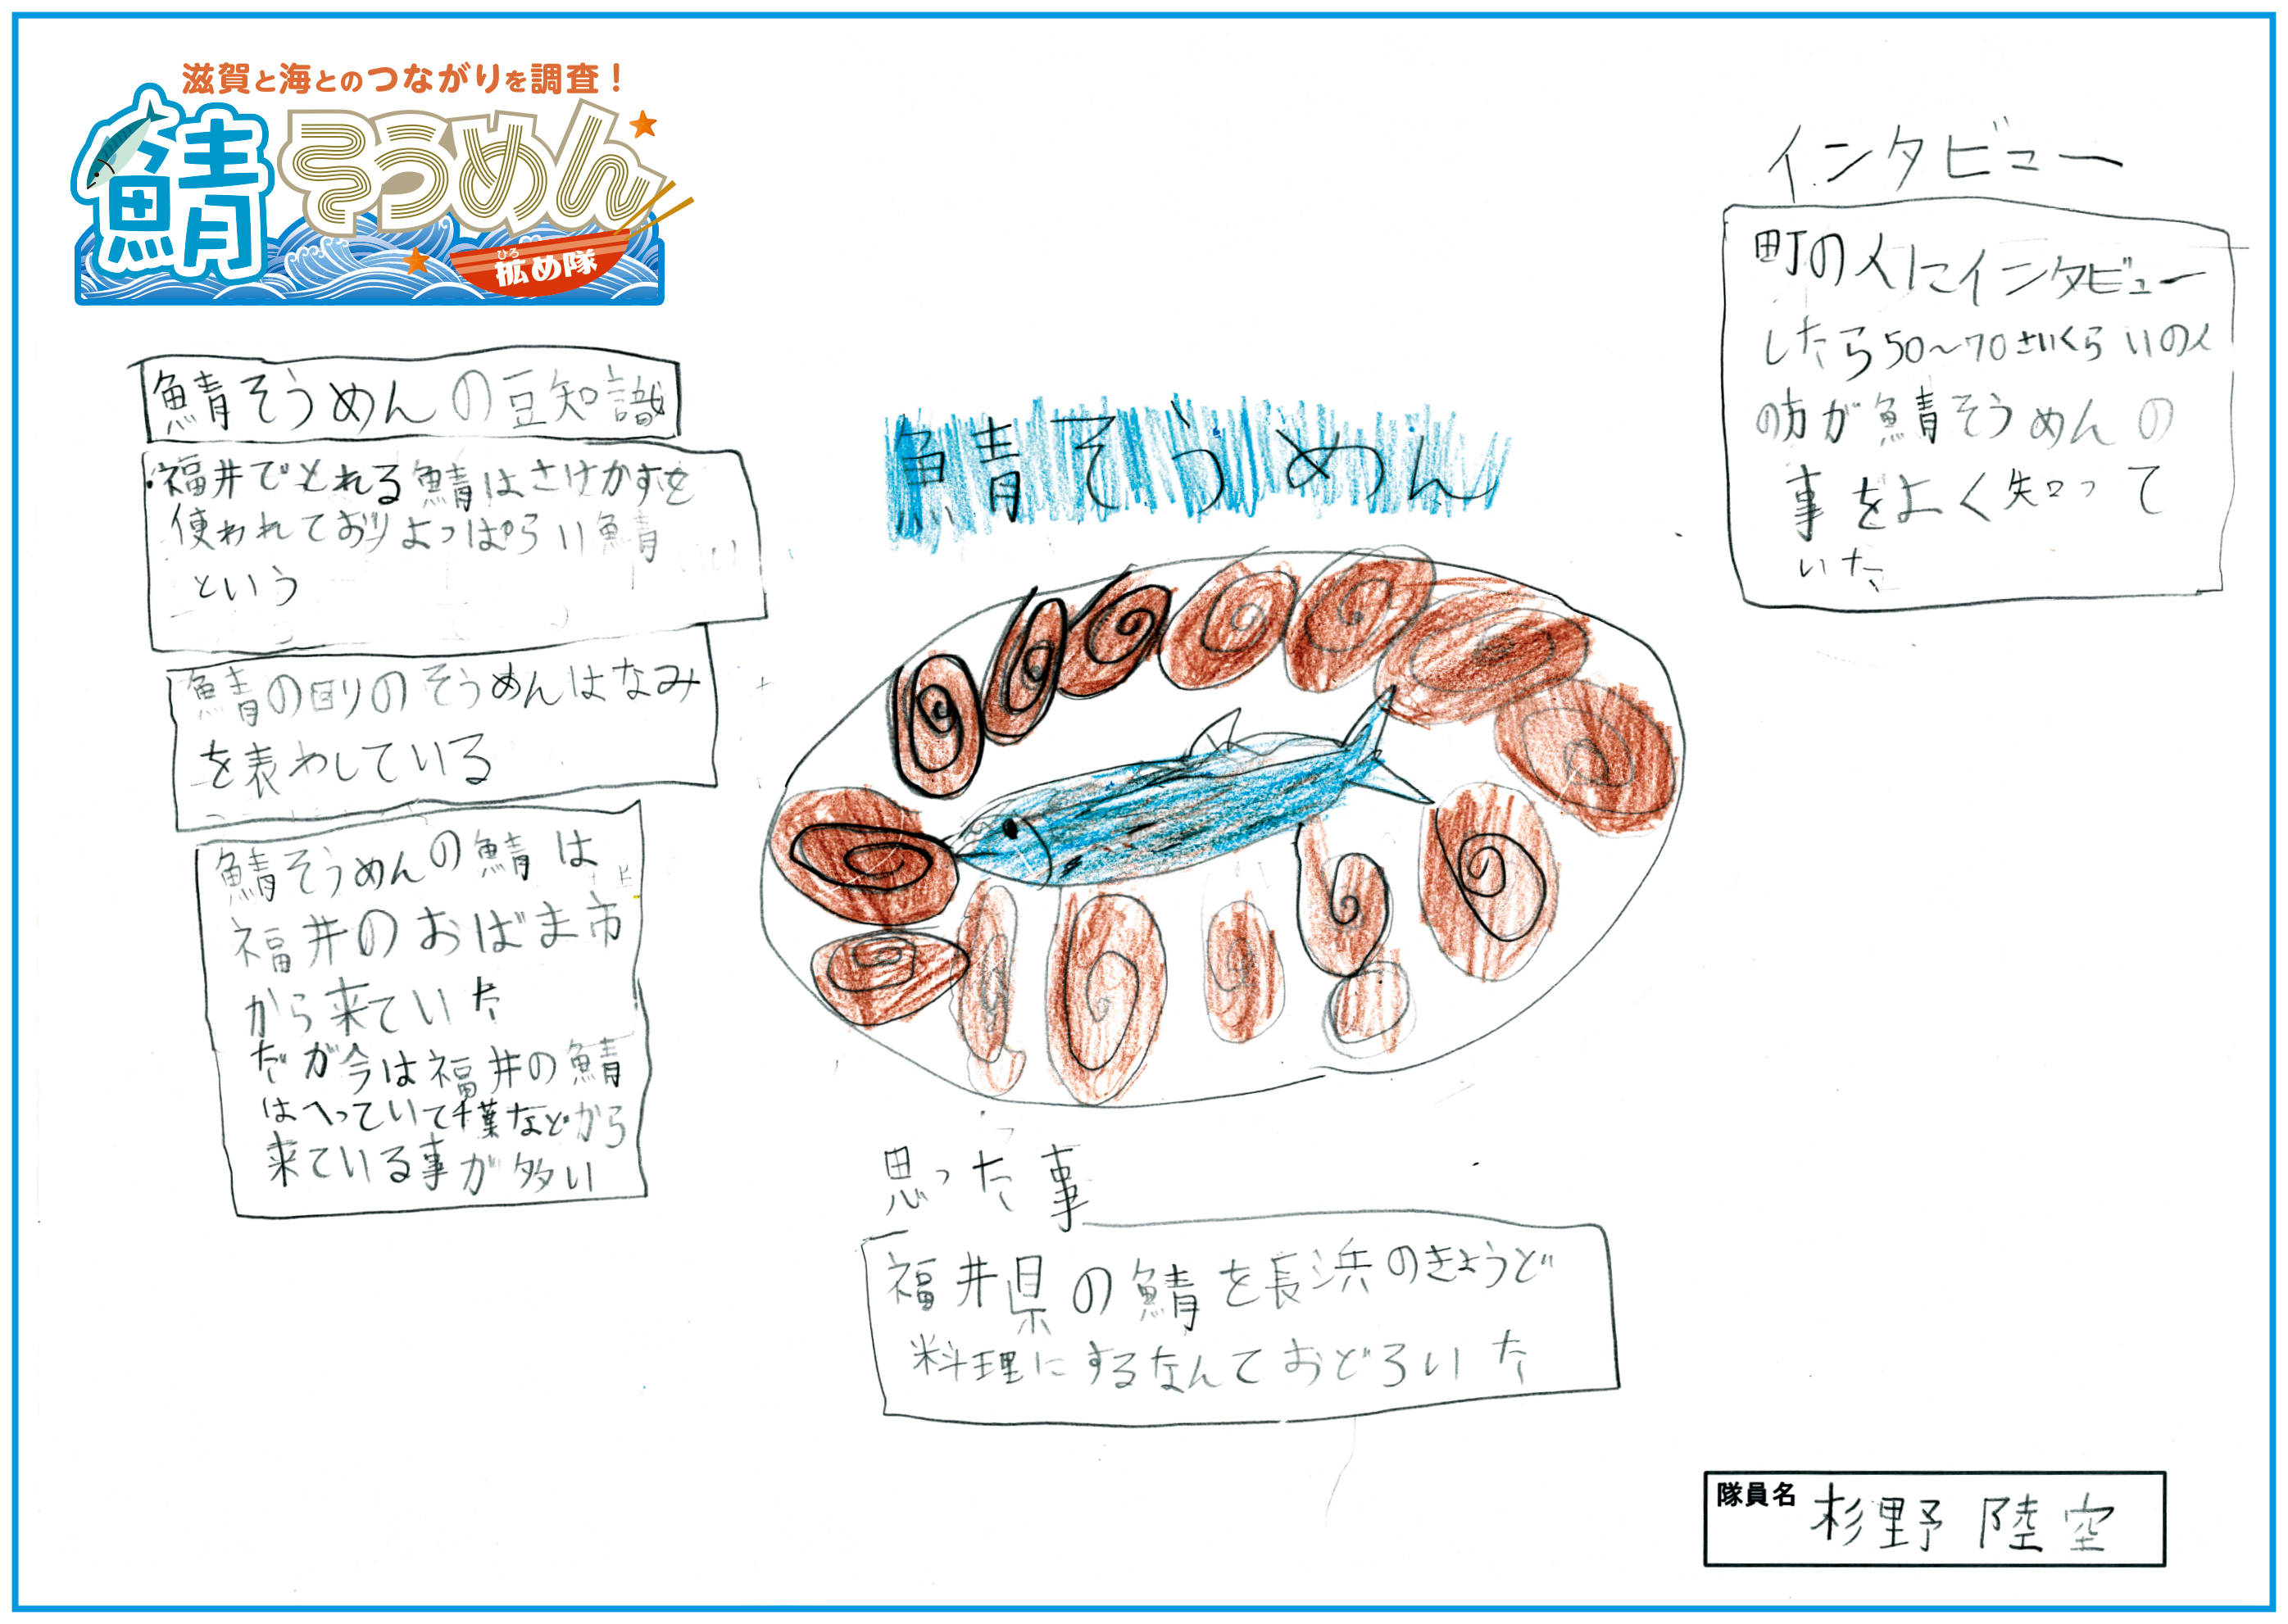 滋賀と海とのつながりを調査！
鯖そうめん
ひろ
拡め隊
鯖そうめんの豆知識
・福井でとれる鯖はさけかすを
使われておりよっぱらい鯖
という
鯖の回りのそうめんはなみ
を表わしている
鯖そうめんの鯖は
福井のおばま市
から来ていた
だが今は福井の鯖
はへっていて千葉などから
来ている事が多い
鯖そうめん
思った事
福井県の鯖を長浜のきょうど
料理にするなんておどろいた
インタビュー
町の人にインタビュー
したら50～70さいくらいの人
の方が鯖そうめんの
事をよく知って
いた
隊員名
杉野 陸空